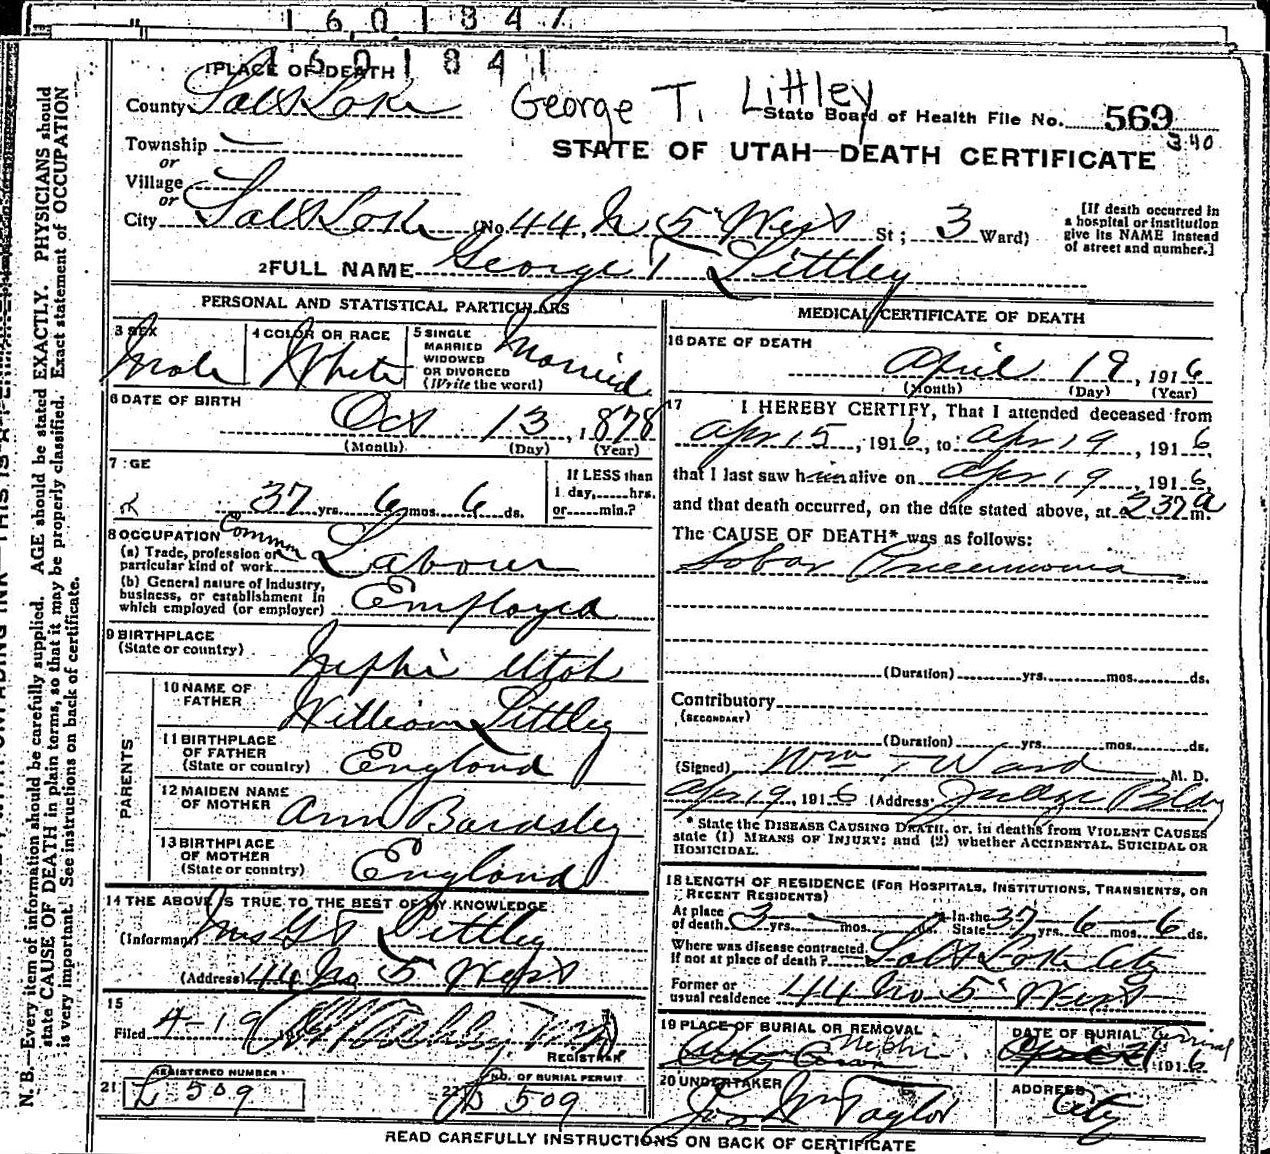 1 6 0 1 8 4 7
1 6 0 1 8 4 1
1 PLACE OF DEATH
County Salt Lake
George T. Littley
State Board of Health File No. 569
340
Township —
STATE OF UTAH—DEATH CERTIFICATE
or
Village
or
City Salt Lake (No. 44 N 5 West St; 3 Ward)
[If death occurred in
a hospital or institution
give its NAME instead
of street and number.]
2 FULL NAME George T Littley
PERSONAL AND STATISTICAL PARTICULARS
3 SEX
Male
4 COLOR OR RACE
White
5 SINGLE
MARRIED
WIDOWED
OR DIVORCED
(Write the word)
Married
6 DATE OF BIRTH
Oct 13, 1878
(Month) (Day) (Year)
7 GE
37 yrs. 6 mos. 6 ds.
If LESS than
1 day, hrs.
or min.?
8 OCCUPATION
(a) Trade, profession or
particular kind of work Common Labour
(b) General nature of Industry,
business, or establishment in
which employed (or employer) Employed
9 BIRTHPLACE
(State or country) Nephi Utah
PARENTS
10 NAME OF
FATHER William Littley
11 BIRTHPLACE
OF FATHER
(State or country) England
12 MAIDEN NAME
OF MOTHER Ann Bardsley
13 BIRTHPLACE
OF MOTHER
(State or country) England
14 THE ABOVE IS TRUE TO THE BEST OF MY KNOWLEDGE
(Informant) Mrs G T Littley
(Address) 44 No 5 West
15
Filed 4-19 191
REGISTRAR
21 REGISTERED NUMBER
L 509
22 NO. OF BURIAL PERMIT
509
MEDICAL CERTIFICATE OF DEATH
16 DATE OF DEATH
April 19, 1916
(Month) (Day) (Year)
17 I HEREBY CERTIFY, That I attended deceased from
Apr 15, 1916, to Apr 19, 1916,
that I last saw him alive on Apr 19, 1916,
and that death occurred, on the date stated above, at 237 a m.
The CAUSE OF DEATH* was as follows:
Lobar Pneumonia
(Duration) yrs. mos. ds.
Contributory
(SECONDARY)
(Duration) yrs. mos. ds.
(Signed) Wm T Ward M. D.
Apr 19, 1916 (Address) Judge Bldg
* State the DISEASE CAUSING DEATH, or, in deaths from VIOLENT CAUSES
state (1) MEANS OF INJURY; and (2) whether ACCIDENTAL, SUICIDAL OR
HOMICIDAL.
18 LENGTH OF RESIDENCE (FOR HOSPITALS, INSTITUTIONS, TRANSIENTS, OR
RECENT RESIDENTS)
At place
of death 3 yrs. mos. ds. In the
State 37 yrs. 6 mos. 6 ds.
Where was disease contracted,
If not at place of death? Salt Lake City
Former or
usual residence 44 No 5 West
19 PLACE OF BURIAL OR REMOVAL
Nephi
DATE OF BURIAL
1916
20 UNDERTAKER
Jos Wm Taylor
ADDRESS
City
READ CAREFULLY INSTRUCTIONS ON BACK OF CERTIFICATE
N. B.—Every item of information should be carefully supplied. AGE should be stated EXACTLY. PHYSICIANS should
state CAUSE OF DEATH in plain terms, so that it may be properly classified. Exact statement of OCCUPATION
is very important. See instructions on back of certificate.